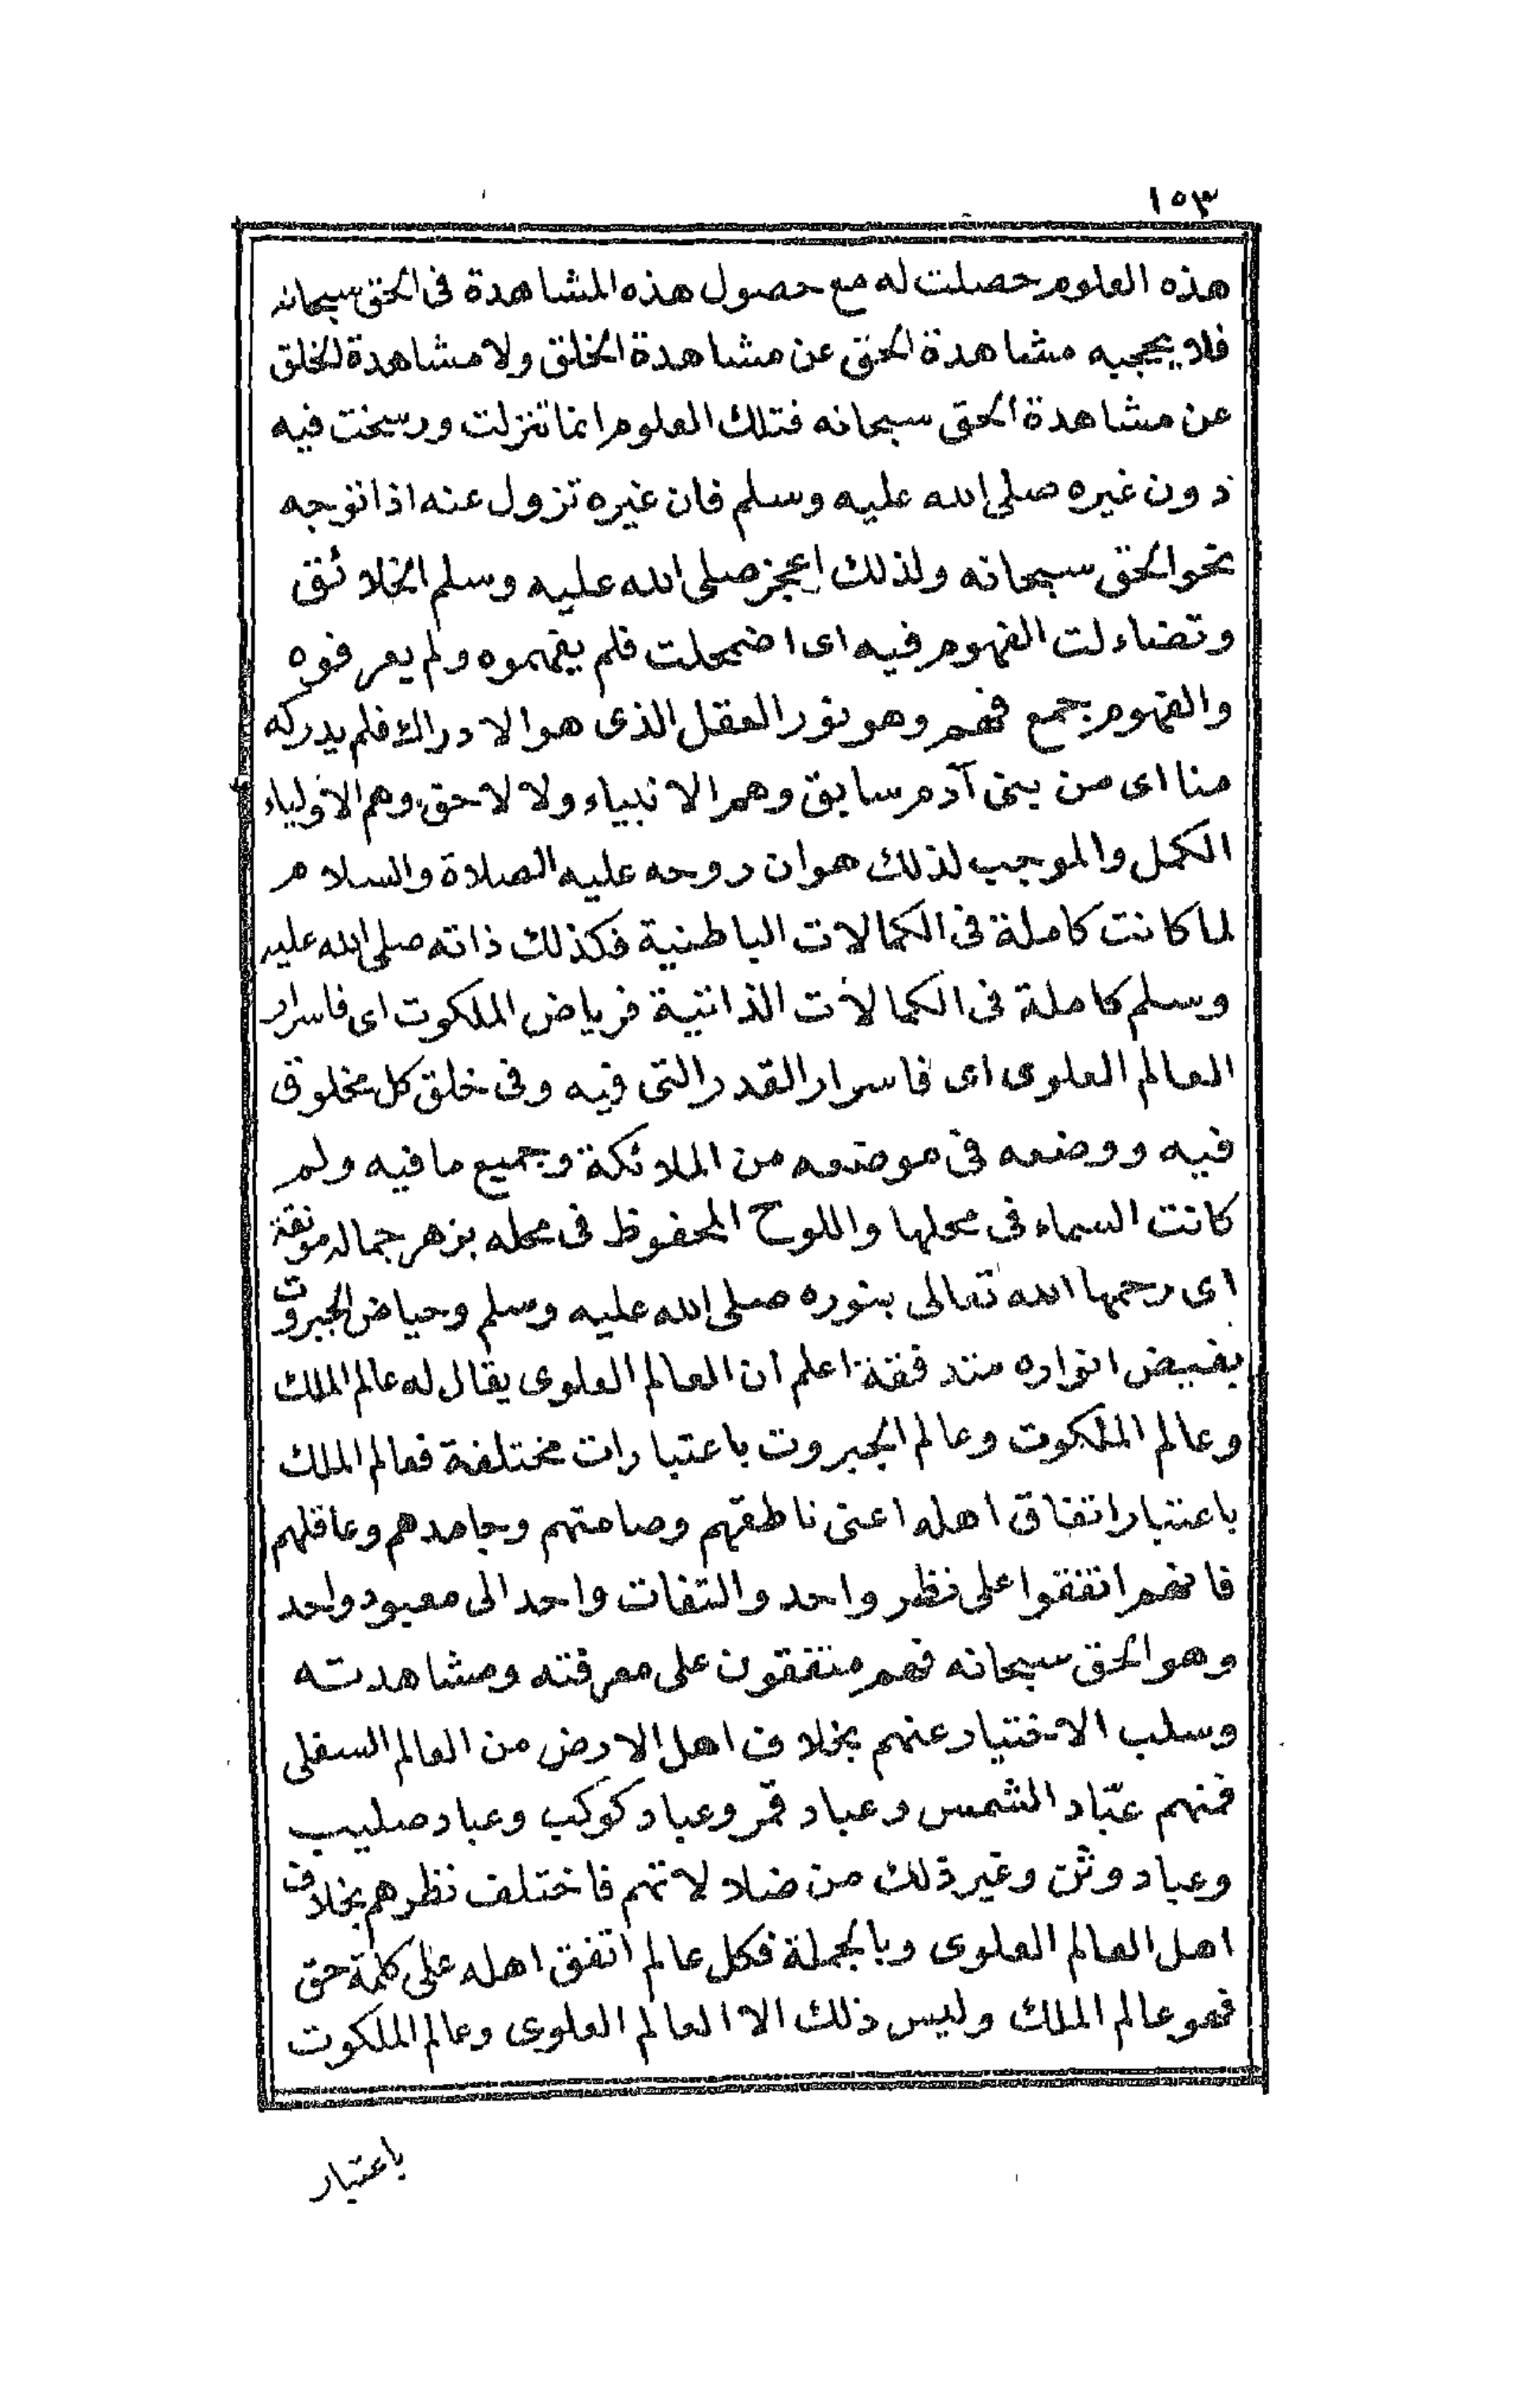 ١٥٣
هذه العلوم حصلت له مع حصول هذه المشاهدة فى الحق سبحانه
فلا يحجبه مشاهدة الحق عن مشاهدة الخلق ولا مشاهدة الخلق
عن مشاهدة الحق سبحانه فتلك العلوم انما تنزلت ورسخت فيه
دون غيره صلى الله عليه وسلم فان غيره تزول عنه اذا توجه
نحو الحق سبحانه ولذلك اعجز صلى الله عليه وسلم الخلائق
وتضاءلت الفهوم فيه اى اضمحلت فلم يفهموه ولم يعرفوه
والفهوم جمع فهم وهو نور العقل الذى هو الادراك فلم يدركه
منا اى من بنى آدم سابق وهم الانبياء ولا لاحق وهم الاولياء
الكمل والموجب لذلك هو ان روحه عليه الصلاة والسلام
لما كانت كاملة فى الكمالات الباطنية فكذلك ذاته صلى الله عليه
وسلم كاملة فى الكمالات الذاتية فرياض الملكوت اى فاسرار
العالم العلوى اى فاسرار القدر التى فيه وفى خلق كل مخلوق
فيه ووضعه فى موضعه من الملائكة وجميع ما فيه ولم
كانت السماء فى محلها واللوح المحفوظ فى محله بزهر جماله مونقة
اى رحمها الله تعالى بنوره صلى الله عليه وسلم وحياض الجبروت
بفيض انواره متدفقة اعلم ان العالم العلوى يقال له عالم الملك
وعالم الملكوت وعالم الجبروت باعتبارات مختلفة فعالم الملك
باعتبار اتفاق اهله اعنى ناطقهم وصامتهم وجامدهم وعاقلهم
فانهم اتفقوا على نظر واحد والتفات واحد الى معبود واحد
وهو الحق سبحانه فهم متفقون على معرفته ومشاهدته
وسلب الاختيار عنهم بخلاف اهل الارض من العالم السفلى
فمنهم عبّاد الشمس وعباد قمر وعباد كوكب وعباد صليب
وعباد وثن وغير ذلك من ضلالاتهم فاختلف نظرهم بخلاف
اهل العالم العلوى وبالجملة فكل عالم اتفق اهله على كلمة حق
فهو عالم الملك وليس ذلك الا العالم العلوى وعالم الملكوت
باعتبار